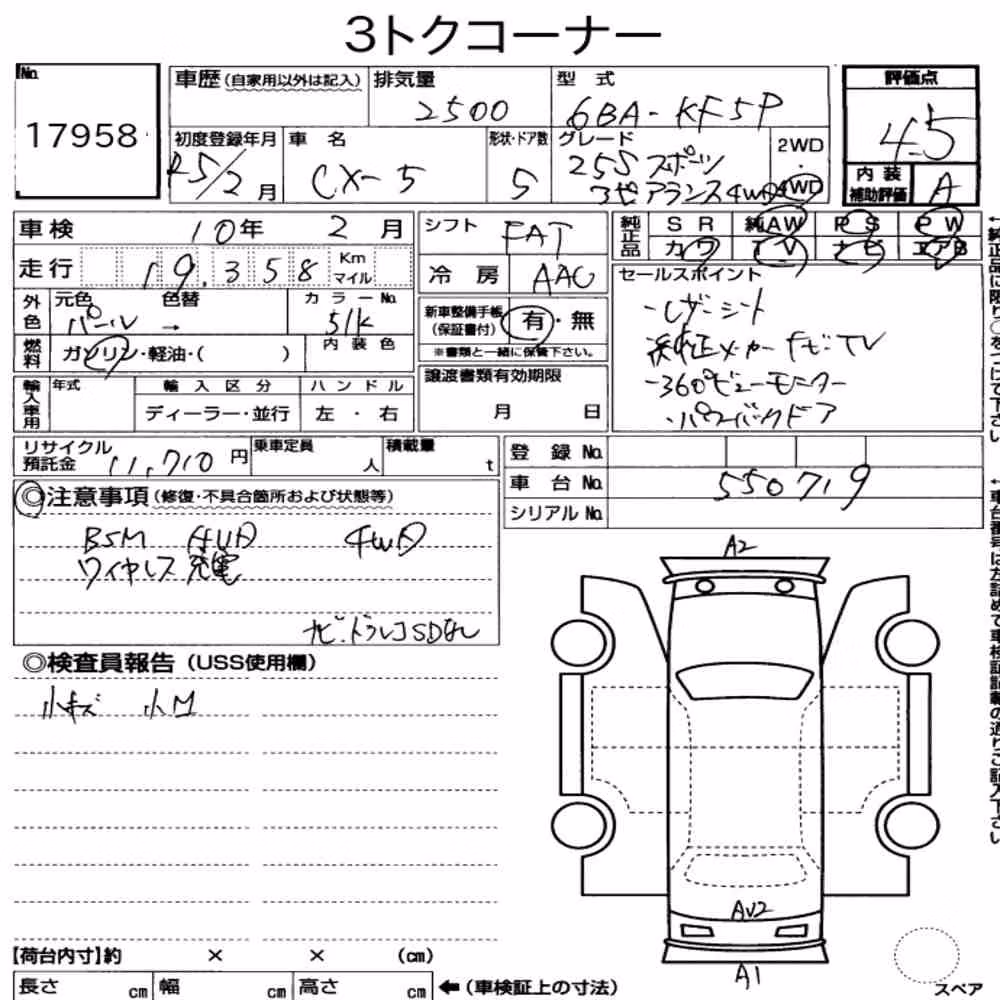 3トクコーナー
No.
17958
車歴(自家用以外は記入)
排気量
2500
型 式
6BA-KF5P
評価点
4.5
初度登録年月
R5/2月
車 名
CX-5
形状・ドア数
5
グレード
25S スポーツ
アピアランス4WD
2WD
・
4WD
内装
補助評価
A
車検 10年 2月
シフト FAT
純正品
SR 純AW PS PW
カワ TV ナビ エアB
走行 19,358 Km マイル
冷房 AAC
セールスポイント
・レザーシート
純正メーカーナビTV
・360°ビューモニター
・パワーバックドア
外色 元色 色替 カラーNo.
パール → 51K
新車整備手帳
(保証書付)
有・無
※書類と一緒に保管下さい。
燃料 ガソリン・軽油・( )
内装色
譲渡書類有効期限
月 日
輸入車用 年式 輸入区分 ハンドル
ディーラー・並行 左・右
リサイクル
預託金 11,710円
乗車定員
人
積載量
t
登録No.
車台No. 550719
シリアルNo.
◎注意事項(修復・不具合箇所および状態等)
BSM HUD 4WD
ワイヤレス充電
ナビ・ドラレコSDなし
◎検査員報告(USS使用欄)
小キズ 小M
A2
AU2
A1
スペア
【荷台内寸】約 × × (cm)
長さ cm 幅 cm 高さ cm
←(車検証上の寸法)
←純正品に限り○をつけて下さい
←車台番号は左詰めで車検証記載の通りご記入下さい